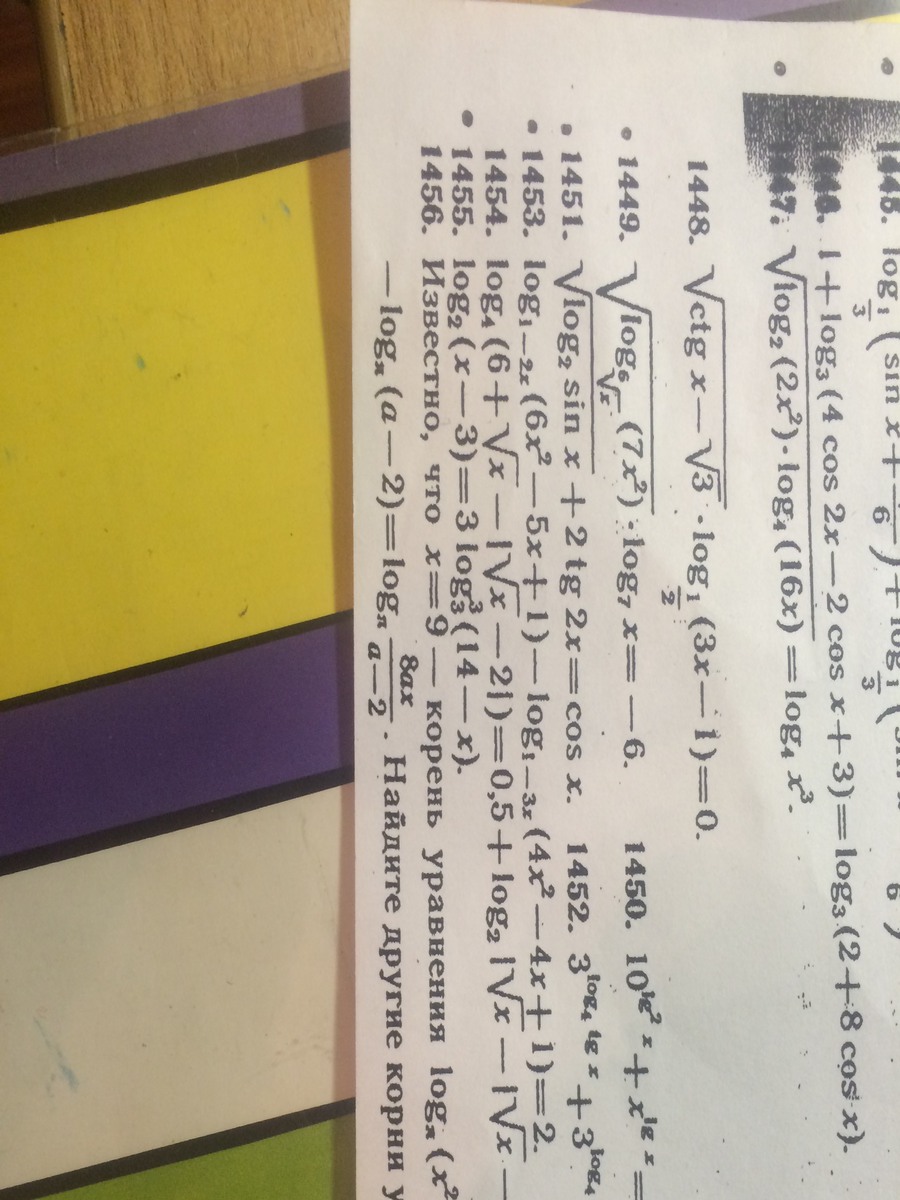 1445. log_{1/3} (sin x + /6) + log_{1/3} (
1446. 1 + log₃ (4 cos 2x — 2 cos x + 3) = log₃ (2 + 8 cos x).
• 1447. √(log₂ (2x²) · log₄ (16x)) = log₄ x³.
1448. √(ctg x — √3) · log_{1/2} (3x — 1) = 0.
• 1449. √(log_{⁶√x} (7x²)) · log₇ x = — 6. 1450. 10^{lg² x} + x^{lg x} =
• 1451. √(log₂ sin x) + 2 tg 2x = cos x. 1452. 3^{log₄ tg x} + 3^{log₄
• 1453. log_{1—2x} (6x² — 5x + 1) — log_{1—3x} (4x² — 4x + 1) = 2.
1454. log₄ (6 + √x — |√x — 2|) = 0,5 + log₂ |√x — |√x —
• 1455. log₂ (x — 3) = 3 log₃³ (14 — x).
1456. Известно, что x = 9 — корень уравнения log_π (x²
— log_π (a — 2) = log_π 8ax/(a — 2). Найдите другие корни у